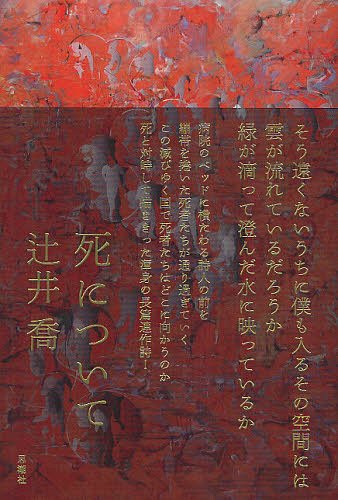 そう遠くないうちに僕も入るその空間には
雲が流れているだろうか
緑が滴って澄んだ水に映っているか
病院のベッドに横たわる詩人の前を
繃帯を巻いた死者たちが通り過ぎていく
この滅びゆく国で死者たちはどこに向かうのか
死と対峙して描ききった渾身の長篇連作詩！
死について
辻井喬
思潮社